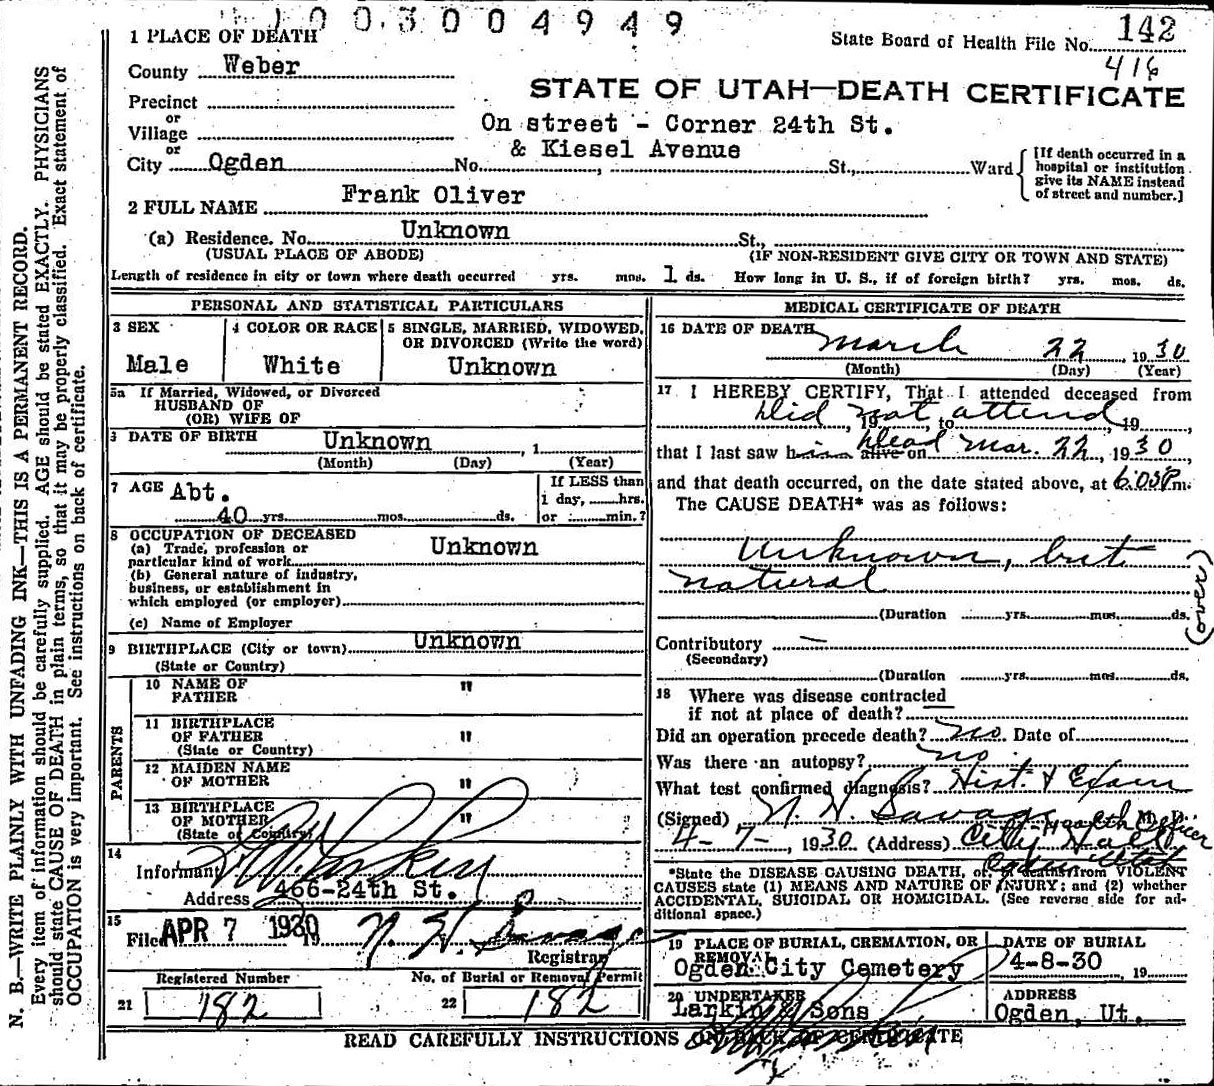 1003004949
1 PLACE OF DEATH
State Board of Health File No. 142
416
County Weber
STATE OF UTAH—DEATH CERTIFICATE
Precinct
or
Village
On street - Corner 24th St.
or
& Kiesel Avenue
City Ogden No. , St., Ward
[If death occurred in a
hospital or institution
give its NAME instead
of street and number.]
2 FULL NAME Frank Oliver
(a) Residence. No. Unknown St.,
(USUAL PLACE OF ABODE) (IF NON-RESIDENT GIVE CITY OR TOWN AND STATE)
Length of residence in city or town where death occurred yrs. mos. 1 ds. How long in U. S., if of foreign birth? yrs. mos. ds.
PERSONAL AND STATISTICAL PARTICULARS
3 SEX
Male
4 COLOR OR RACE
White
5 SINGLE, MARRIED, WIDOWED,
OR DIVORCED (Write the word)
Unknown
5a If Married, Widowed, or Divorced
HUSBAND OF
(OR) WIFE OF
DATE OF BIRTH Unknown , 1
(Month) (Day) (Year)
7 AGE Abt.
40 yrs. mos. ds.
If LESS than
1 day, hrs.
or min.?
8 OCCUPATION OF DECEASED
(a) Trade, profession or
particular kind of work Unknown
(b) General nature of industry,
business, or establishment in
which employed (or employer)
(c) Name of Employer
9 BIRTHPLACE (City or town) Unknown
(State or Country)
PARENTS
10 NAME OF
FATHER "
11 BIRTHPLACE
OF FATHER "
(State or Country)
12 MAIDEN NAME
OF MOTHER "
13 BIRTHPLACE
OF MOTHER "
(State or Country)
14
Informant
Address 466-24th St.
15
Filed APR 7 1930 19 N. H. Savage
Registrar
Registered Number
21 182
No. of Burial or Removal Permit
22 182
MEDICAL CERTIFICATE OF DEATH
16 DATE OF DEATH March 22, 1930
(Month) (Day) (Year)
17 I HEREBY CERTIFY, That I attended deceased from
Did not attend
, 19 , to , 19 ,
that I last saw him alive on Dead Mar. 22, 1930
and that death occurred, on the date stated above, at 6:05P m.
The CAUSE DEATH* was as follows:
Unknown, but
natural
(over)
(Duration yrs. mos. ds.
Contributory —
(Secondary)
(Duration yrs. mos. ds.
18 Where was disease contracted
if not at place of death? —
Did an operation precede death? no Date of
Was there an autopsy? no
What test confirmed diagnosis? Hist. & Exam
(Signed) N. H. Savage M. D.
Health Officer
4-7-, 1930 (Address) City Hall
Ogden Utah
*State the DISEASE CAUSING DEATH, or, in deaths from VIOLENT
CAUSES state (1) MEANS AND NATURE OF INJURY; and (2) whether
ACCIDENTAL, SUICIDAL OR HOMICIDAL. (See reverse side for ad-
ditional space.)
19 PLACE OF BURIAL, CREMATION, OR
REMOVAL
Ogden City Cemetery
DATE OF BURIAL
4-8-30 , 19
20 UNDERTAKER
Larkin & Sons
ADDRESS
Ogden, Ut.
READ CAREFULLY INSTRUCTIONS ON BACK OF CERTIFICATE
N. B.—WRITE PLAINLY WITH UNFADING INK—THIS IS A PERMANENT RECORD.
Every item of information should be carefully supplied. AGE should be stated EXACTLY. PHYSICIANS
should state CAUSE OF DEATH in plain terms, so that it may be properly classified. Exact statement of
OCCUPATION is very important. See instructions on back of certificate.